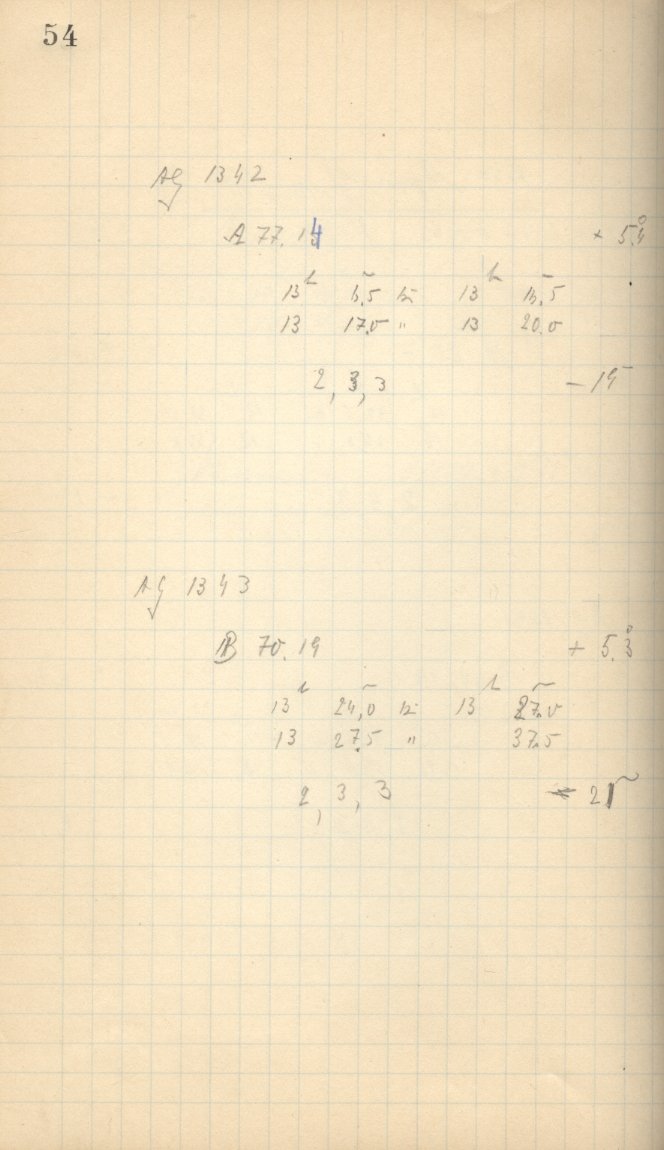 54
AG 1342
A 77.14 + 5.°4
13ʰ 6,5 bis 13ʰ 16,5
13 17,0 " 13 20.0
2, 3, 3 − 19
AG 1343
B 70.19 + 5.°3
13ʰ 24,0 bis 13ʰ 27.0
13 27.5 " 37.5
2, 3, 3 21